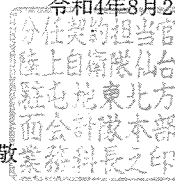 令和4年8月2
分任契約担当官
陸上自衛隊仙台
駐屯地東北方
面会計隊本部
業務科長之印
敬